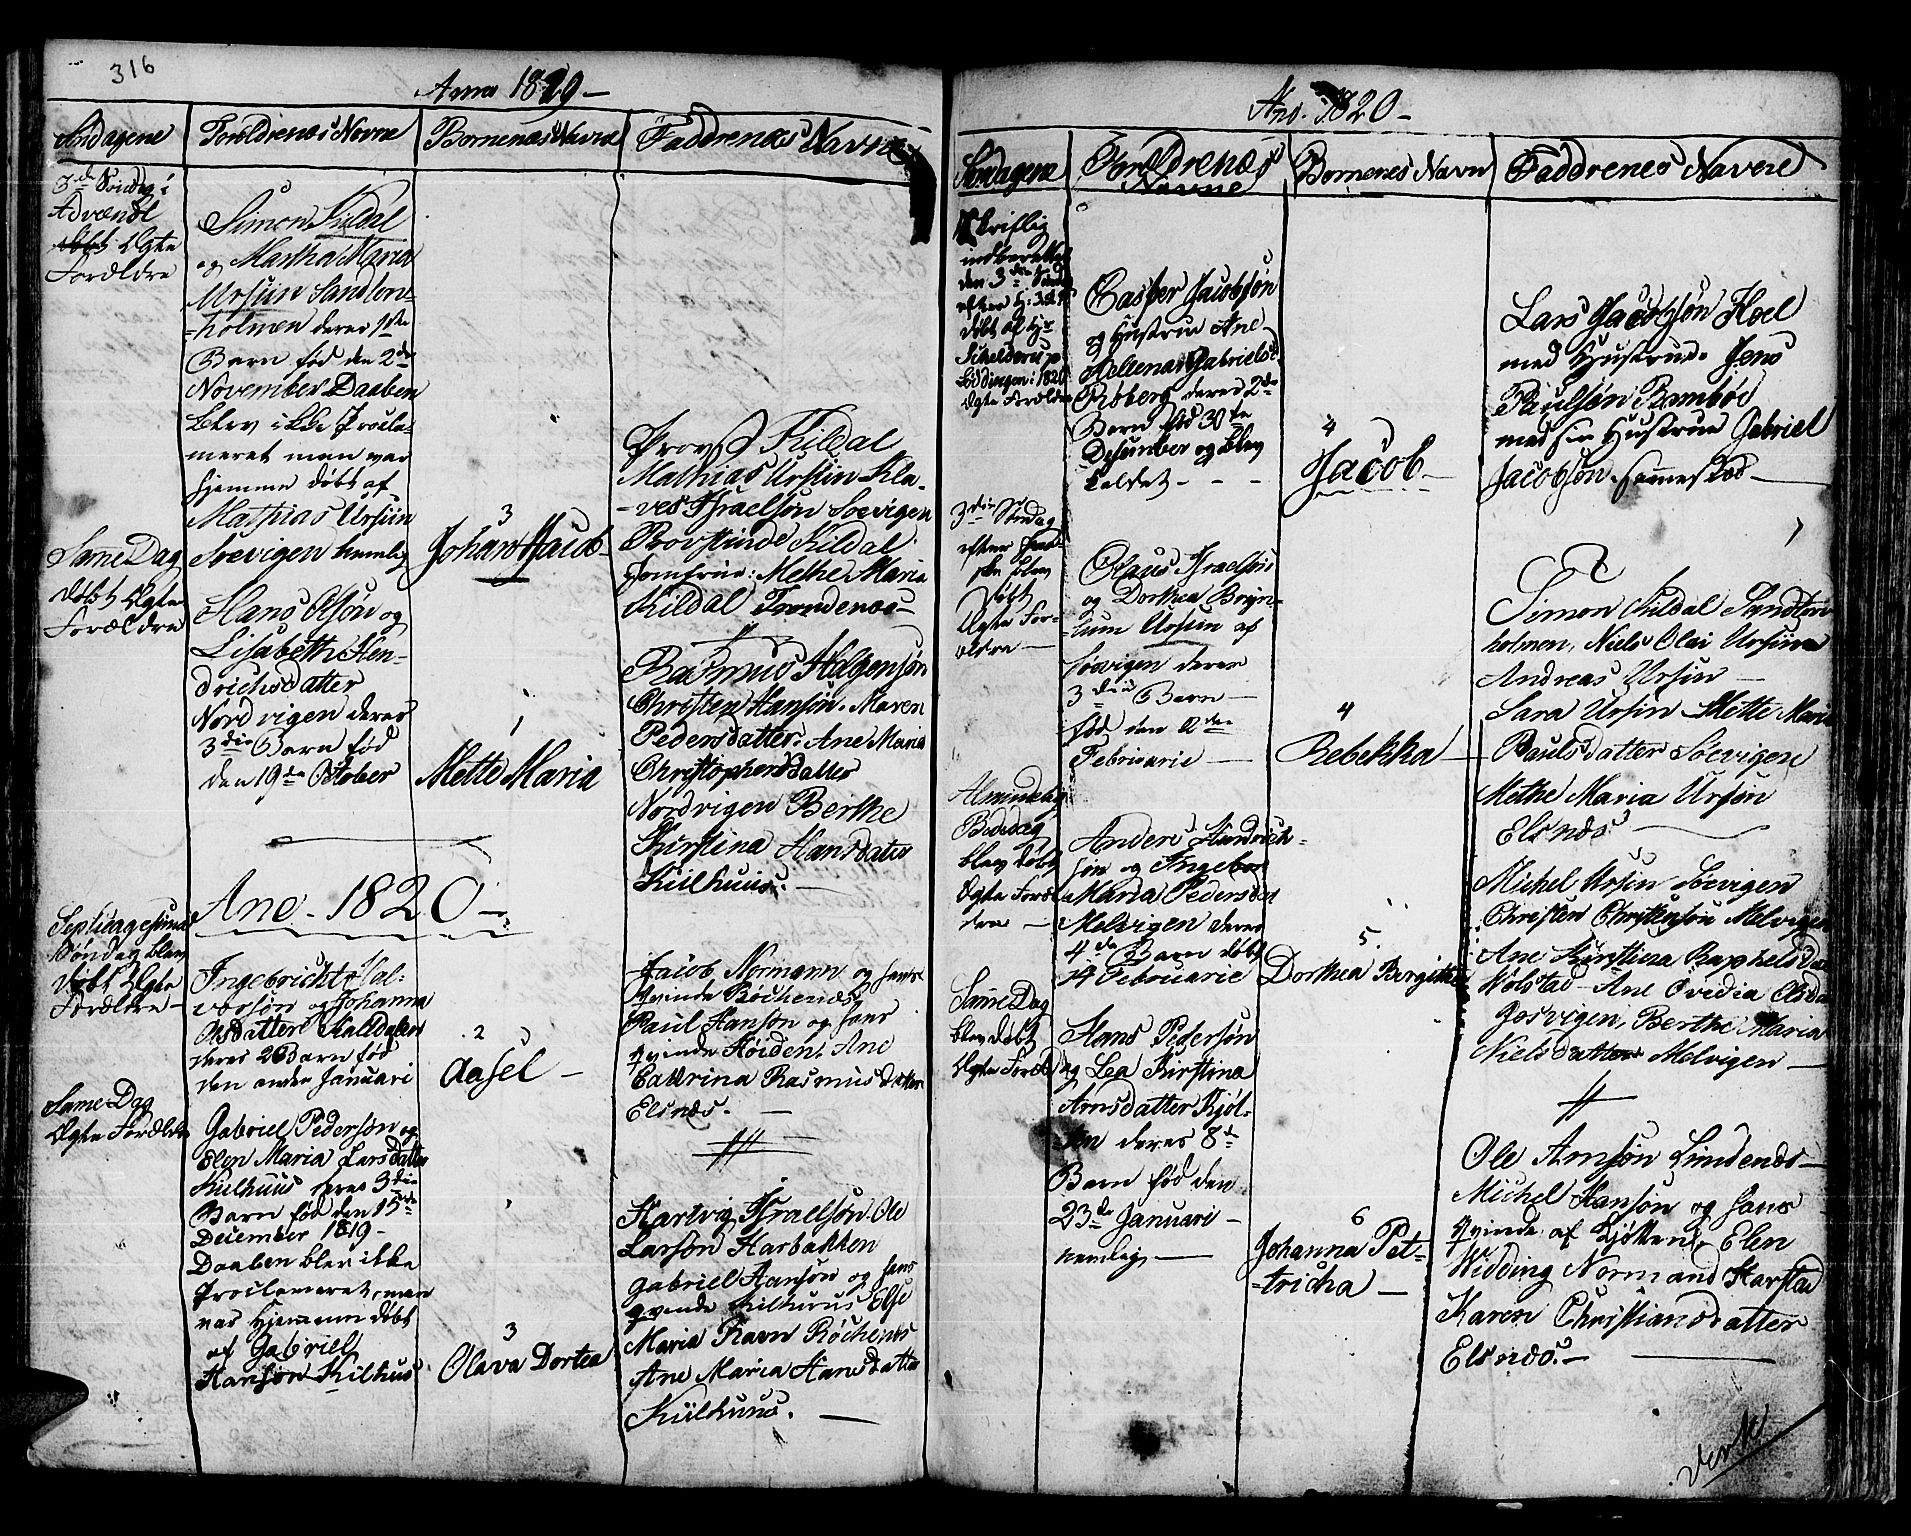 316
Anno 1819 –
Søndagene
Forældrenes Navne
Børnenes Navne
Faddrenes Navne
3de Søndag i
Advændt
døbt Ægte
Forældre
Simon Kildal
og Martha Maria
Ursiin Sandtorv-
-holmen deres 1ste
Barn fød den 2de
November Daaben
blev ikke Procla-
meret men var
hjemme døbt af
Mathias Ursiin
Soevigen kaml
3
Johan Jacob
Provst Kildal
Mathias Ursiin Kla-
-ves Israelsøn Soevigen
Provstinde Kildal
Jomfrue: Methe Maria
Kildal Trondenæs –
Same Dag
døbt Ægte
Forældre
Hans Olsøn og
Lisabeth Hen-
drichsdatter
Nordvigen deres
3die Barn fød
den 19de October
1
Mette Maria
Rasmus Helgensøn
Christen Hansøn. Maren
Pedersdatter. Ane Maria
Christophersdatter
Nordvigen Berthe
Kirstina Hansdatter
Kiilhuus. –
Ano – 1820 –
Septuagesima
Søndag blev
døbt Ægte
Forældre –
Ingebricht Hal-
vorsøn og Johanna
Olsdatter Kalldalen
deres 2 Barn fød
den anden Januari
2
Aasel –
Jacob Normann og hans
Qvinde Röchenæs
Paul Hansøn og hans
qvinde Høiden. Ane
Catrina Rasmusdatter
Elsnæs. –
Same Dag
Ægte Forældre
Gabriel Pedersøn og
Elen Maria Larsdatter
Kiilhuus deres 3die
Barn fød den 15de
December 1819 –
Daaben blev ikke
Proclameret, men
var Hjemmedøbt
af Gabriel
Hansøn Kilhus
3
Olava Dortea
Hartvig Israelsøn. Ole
Larsøn Harbakken
Gabriel Hansøn og hans
qvinde Kilhuus Else
Maria Ravn Röchenæs
Ane Maria Hansdatter
Kiilhuus. –
Ano. 1820 –
Søndagene
Forældrenes
Navne
Børnenes Navn
Faddrenes Navne
Skriflig
indberettet
den 3die Sønd
efter H: 3 K:
døbt af Hr
Schelderup
Lødingen i 1820
Ægte Forældre
Casper Jacobsøn
og Hustrue Ane
Hellena Gabrielsd
Røberg deres 2de
Barn fød 30te
Desember og blev
kaldet – – –
4
Jacob –
Lars Jacobsøn Hoel
med Hustrue. Jens
Paulsøn Bembøe
med sin Hustrue Gabriel
Jacobsøn. Finneskod –
3die Søndag
efter Paa-
ske blev
døbt
Ægte For-
ældre –
Olaus Israelsøn
og Dorthea Bryn-
lum Ursiin af
Soevigen deres
3die Barn –
fød den 2den
Februarie –
4
Rebekka –
Simon Kildal Sandtorv
holmen, Niels Olai Ursiin
Andreas Ursin –
Sara Ursin Mette Maria
Paulsdatter Soevigen
Methe Maria Ursin
Elsnæs –
Almindelig
Bededag
blev døbt
Ægte Foræl-
dre –
Anders Hendrich-
søn og Ingebor
Maria Pedersdat
Melvigen deres
4de Barn døbt
14 Februarie
5.
Dorthea Birgitte
Michel Ursin Soevigen
Christen Christensøn Melvigen
Ane Kirstina Raphelsdat
Wolstad – Ane Ovedia Elsda
Gosvigen, Berthe Maria
Nielsdatter Melvigen –
Same Dag
blev døbt
Ægte Foræld
Hans Pedersøn
og Lea Kirstina
Arnsdatter Kjøt-
ten deres 8de
Barn fød den
23de Januari –
nemlig –
6
Johanna Pet-
-tricha –
Ole Arnsøn Lundenæs –
Michel Hansøn og hans
qvinde af Kjøtten. Elen
Widding Normand Harstad
Karen Christiansdatter
Elsnæs. –
Verte